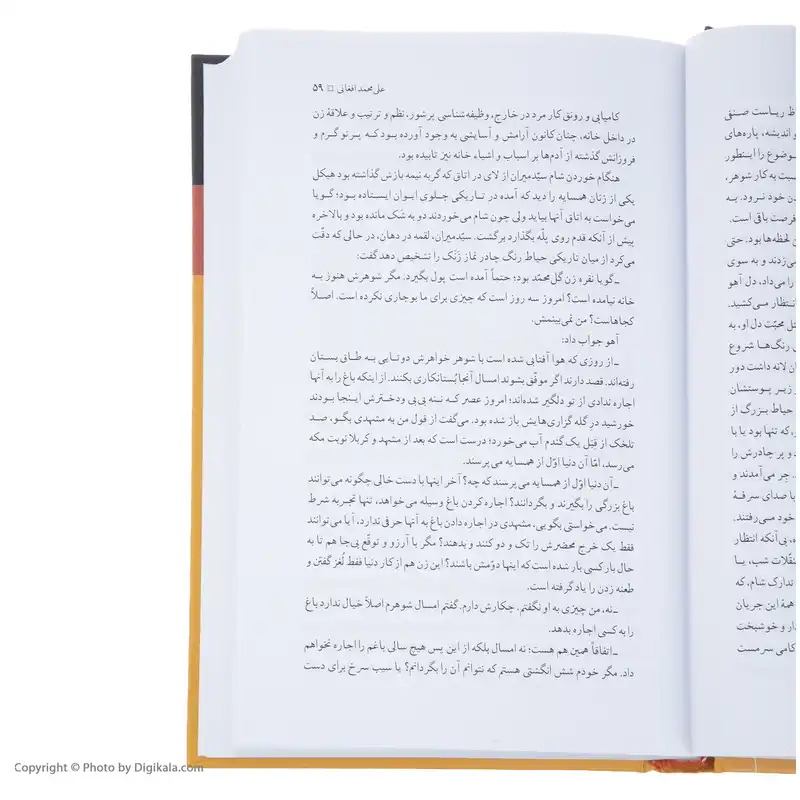 علی‌محمد افغانی □ ۵۹
کامیابی و رونق کار مرد در خارج، وظیفه‌شناسی پرشور، نظم و ترتیب و علاقهٔ زن
در داخل خانه، چنان کانون آرامش و آسایشی به وجود آورده بود کـه پـرتو گـرم و
فروزانش گذشته از آدم‌ها بر اسباب و اشیاء خانه نیز تابیده بود.
هنگام خوردن شام سیّدمیران از لای در اتاق که گربه نیمه بازش گذاشته بود هیکل
یکی از زنان همسایه را دید که آمده در تاریکی جلوی ایوان ایستاده بود؛ گـویا
می‌خواست به اتاق آنها بیاید ولی چون شام می‌خوردند دو به شک مانده بود و بالاخره
پیش از آنکه قدم روی پلّه بگذارد برگشت. سیّدمیران، لقمه در دهان، در حالی که دقّت
می‌کرد از میان تاریکی حیاط رنگ چادر نماز زنک را تشخیص دهد گفت:
ـ گویا نقره زن گل‌محمّد بود؛ حتماً آمده است پول بگیرد. مگر شوهرش هنوز بـه
خانه نیامده است؟ امروز سه روز است که چیزی برای ما بوجاری نکرده است. اصـلاً
کجاهاست؟ من نمی‌بینمش.
آهو جواب داد:
ـ از روزی که هوا آفتابی شده است با شوهر خواهرش دوتایی بـه طـاق بستان
رفته‌اند. قصد دارند اگر موفّق بشوند امسال آنجا بُستانکاری بکنند. از اینکه باغ را به آنها
اجاره ندادی از تو دلگیر شده‌اند؛ امروز عصر کـه نـنه بی‌بی ودخـترش اینجا بـودند
خورشید در گله گزاری‌هایش باز شده بود. می‌گفت از قول من به مشهدی بگـو، صـد
تلخک از قِبَل یک گندم آب می‌خورد؛ درست است که بعد از مشهد و کربلا نوبت مکه
می‌رسد، امّا آن دنیا اوّل از همسایه می‌پرسند.
ـ آن دنیا اوّل از همسایه می‌پرسند که چه؟ آخر اینها با دست خالی چگونه می‌توانند
باغ بزرگی را بگیرند و بگردانند؟ اجاره کردن باغ وسیله می‌خواهد، تنها تجـربه شرط
نیست. می‌خواستی بگویی، مشهدی در اجاره دادن باغ به آنها حرفی ندارد، آیا می‌توانند
فقط یک خرج محضرش را تک و دو کنند و بدهند؟ مگر با آرزو و توقّع بی‌جا هم تا به
حال بار کسی بار شده است که اینها دوّمش باشند؟ این زن هم از کار دنیا فقط لُغز گفتن و
طعنه زدن را یاد گرفته است.
ـ نه، من چیزی به او نگفتم. چکارش دارم. گفتم امسال شوهرم اصلاً خیال ندارد باغ
را به کسی اجاره بدهد.
ـ اتفاقاً همین هم هست؛ نه امسال بلکه از این پس هیچ سالی باغم را اجاره نخواهم
داد. مگر خودم شش انگشتی هستم که نتوانم آن را بگردانم؟ یا سیب سرخ برای دست
ظ ریـاست صـنف
و اندیشه، پاره‌های
وضوع را اینـطور
سبت به کار شوهر،
ن خود نرود. بـه
فرصت باقی است.
ن لحظه‌ها بود. حتی
می‌زدند و به سوی
را می‌داد، دل آهو
نـتظار مـی‌کشید.
محبّت دل او، به
رنگ‌هـا شروع
ن لانه داشت دور
زیـر پـوستشان
حیاط بـزرگ از
که تنها بود یا با
و پر چادرش را
جر می‌آمدند و
با صدای سرفهٔ
خود مـی‌رفتند.
بی‌آنکه انتظار
نقّلات شب، یـا
تدارک شام، که
همهٔ این جریان
دار و خوشبخت
کامی سرمست
Copyright © Photo by Digikala.com